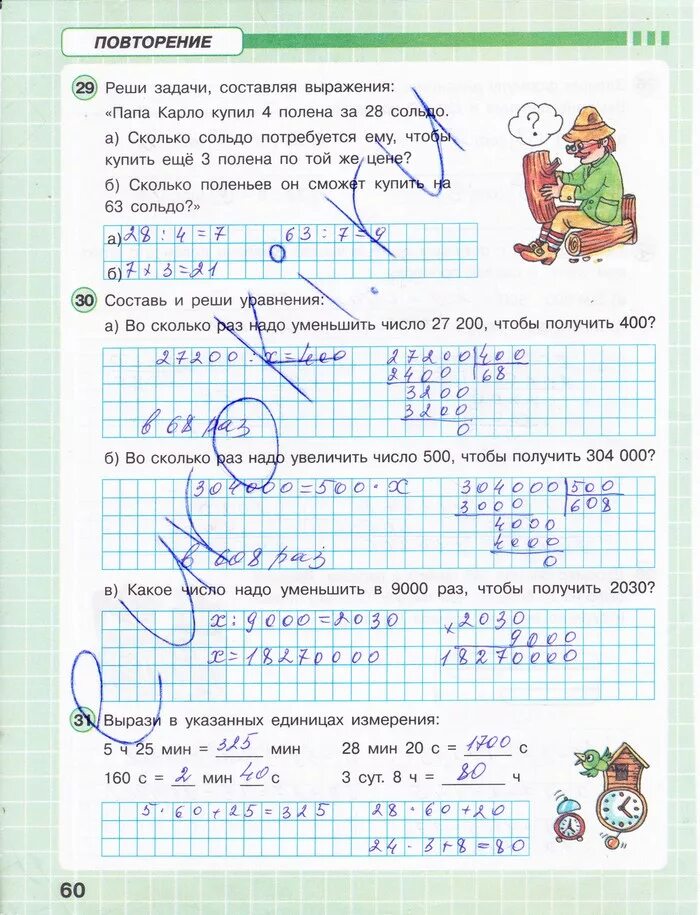 ПОВТОРЕНИЕ
29 Реши задачи, составляя выражения:
«Папа Карло купил 4 полена за 28 сольдо.
а) Сколько сольдо потребуется ему, чтобы
купить ещё 3 полена по той же цене?
б) Сколько поленьев он сможет купить на
63 сольдо?»
?
а) 28 : 4 = 7 63 : 7 = 9
б) 7 × 3 = 21
30 Составь и реши уравнения:
а) Во сколько раз надо уменьшить число 27 200, чтобы получить 400?
27200 : х = 400 27200 400
2400 68
3200
3200
в 68 раз 0
б) Во сколько раз надо увеличить число 500, чтобы получить 304 000?
304000 = 500 · х 304000 500
3000 608
4000
4000
в 608 раз 0
в) Какое число надо уменьшить в 9000 раз, чтобы получить 2030?
х : 9000 = 2030 × 2030
9000
х = 18270000 18270000
31 Вырази в указанных единицах измерения:
5 ч 25 мин = 325 мин 28 мин 20 с = 1700 с
160 с = 2 мин 40 с 3 сут. 8 ч = 80 ч
5 · 60 + 25 = 325 28 · 60 + 20
24 · 3 + 8 = 80
60